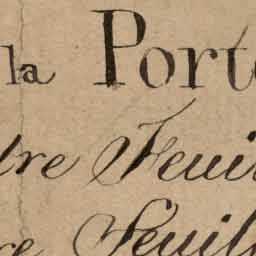 la Porte
tre Feuil
re Feuill